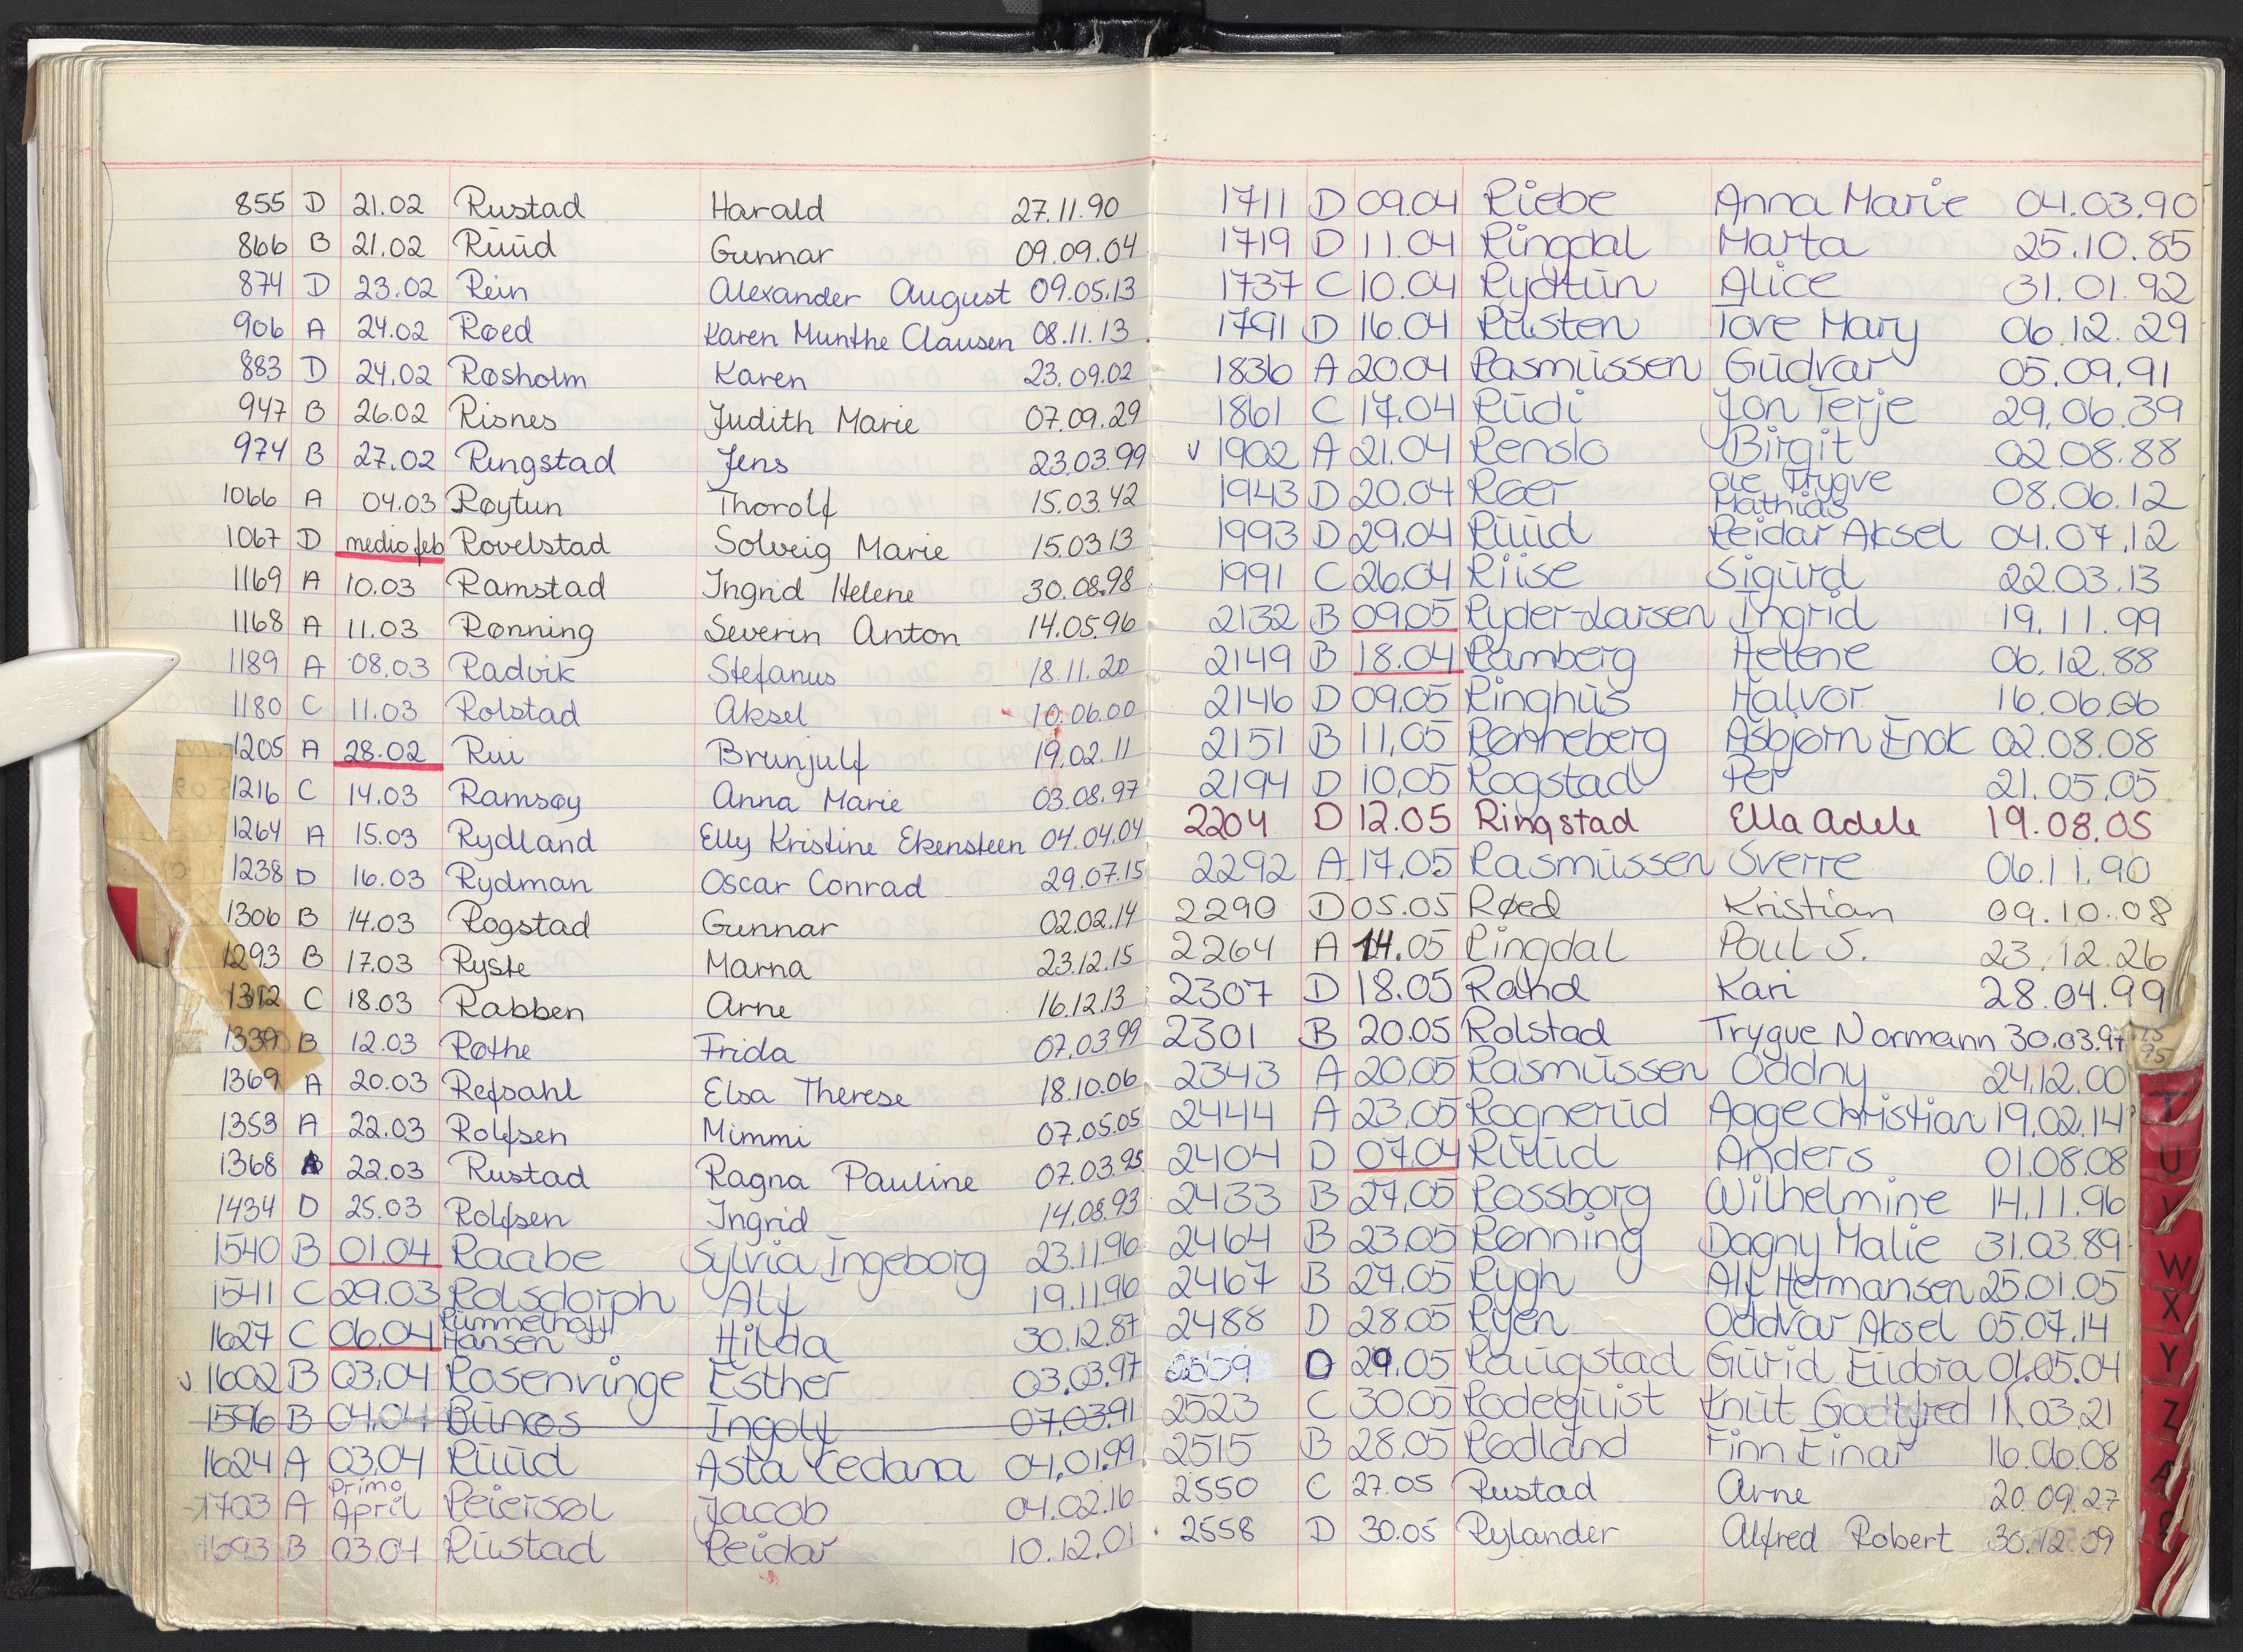 855 D 21.02 Rustad Harald 27.11.90
866 B 21.02 Ruud Gunnar 09.09.04
874 D 23.02 Rein Alexander August 09.05.13
906 A 24.02 Røed Karen Munthe Clausen 08.11.13
883 D 24.02 Røsholm Karen 23.09.02
947 B 26.02 Risnes Judith Marie 07.09.29
974 B 27.02 Ringstad Jens 23.03.99
1066 A 04.03 Røytun Thorolf 15.03.42
1067 D medio feb Rovelstad Solveig Marie 15.03.13
1169 A 10.03 Ramstad Ingrid Helene 30.08.98
1168 A 11.03 Rønning Severin Anton 14.05.96
1189 A 08.03 Radvik Stefanus 18.11.20
1180 C 11.03 Rolstad Aksel 10.06.00
1205 A 28.02 Rui Brunjulf 19.02.11
1216 C 14.03 Ramsøy Anna Marie 03.08.97
1264 A 15.03 Rydland Elly Kristine Ekensteen 04.04.04
1238 D 16.03 Rydman Oscar Conrad 29.07.15
1306 B 14.03 Rogstad Gunnar 02.02.14
1293 B 17.03 Ryste Marna 23.12.15
1312 C 18.03 Rabben Arne 16.12.13
1339 B 12.03 Røthe Frida 07.03.99
1369 A 20.03 Refsahl Elsa Therese 18.10.06
1353 A 22.03 Rolfsen Mimmi 07.05.05
1368 22.03 Rustad Ragna Pauline 07.03.95
1434 D 25.03 Rolfsen Ingrid 14.08.93
1540 B 01.04 Raabe Sylvia Ingeborg 23.11.96
1541 C 29.03 Rolsdorph Alf 19.11.96
Rummelhoff
1627 C 06.04 Hansen Hilda 30.12.87
v 1602 B 03.04 Rosenvinge Esther 03.03.97
1596 B 04.04 Bunes Ingolf 07.03.91
1624 A 03.04 Ruud Asta Cedana 04.01.99
Primo
1703 A April Reiersøl Jacob 04.02.16
1693 B 03.04 Rustad Reidar 10.12.01
1711 D 09.04 Riebe Anna Marie 04.03.90
1719 D 11.04 Ringdal Marta 25.10.85
1737 C 10.04 Rydtun Alice 31.01.92
1791 D 16.04 Rusten Tove Mary 06.12.29
1836 A 20.04 Rasmussen Gudvar 05.09.91
1861 C 17.04 Rudi Jon Terje 29.06.39
v 1902 A 21.04 Renslo Birgit 02.08.88
1943 D 20.04 Røer Ole Trygve 08.06.12
Mathias
1993 D 29.04 Ruud Reidar Aksel 04.07.12
1991 C 26.04 Riise Sigurd 22.03.13
2132 B 09.05 Ryder-Larsen Ingrid 19.11.99
2149 B 18.04 Ramberg Helene 06.12.88
2146 D 09.05 Ringhus Halvor 16.06.06
2151 B 11.05 Rønneberg Asbjørn Enok 02.08.08
2194 D 10.05 Rogstad Per 21.05.05
2204 D 12.05 Ringstad Ella Adele 19.08.05
2292 A 17.05 Rasmussen Sverre 06.11.90
2290 D 05.05 Røed Kristian 09.10.08
2264 A 14.05 Ringdal Poul S. 23.12.26
2307 D 18.05 Kari 28.04.99
2301 B 20.05 Rolstad Trygve Normann 30.03.97
2343 A 20.05 Rasmussen Oddny 24.12.00
2444 A 23.05 Rognerud Aage Christian 19.02.14
2404 D 07.04 Ruud Anders 01.08.08
2433 B 27.05 Rossborg Wilhelmine 14.11.96
2464 B 23.05 Rønning Dagny Malie 31.03.89
2467 B 27.05 Rygh Alf Hermansen 25.01.05
2488 D 28.05 Ryen Oddvar Aksel 05.07.14
D 29.05 Raugstad Gurid Eudora 01.05.04
2523 C 30.05 Rodequist Knut Godtfred 11.03.21
2515 B 28.05 Rødland Finn Einar 16.06.08
2550 C 27.05 Rustad Arne 20.09.27
2558 D 30.05 Rylander Alfred Robert 30.12.09
T
U
V
W
X
Y
Z